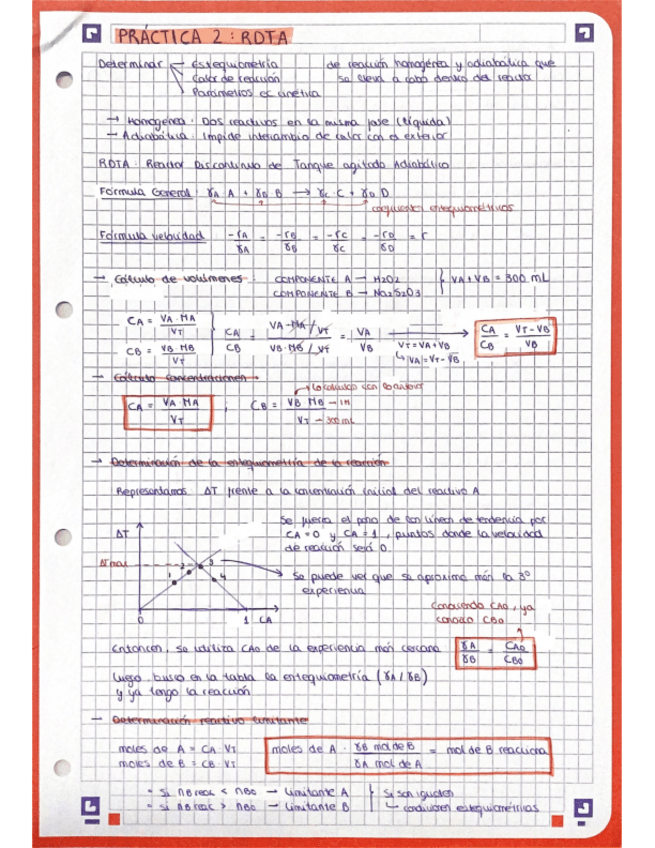 PRÁCTICA 2 : RDTA
Determinar → Estequiometría de reacción homogénea y adiabática que
Calor de reacción se lleva a cabo dentro del reactor
Parámetros ec cinética
→ Homogénea : Dos reactivos en la misma fase (líquida)
→ Adiabática : Impide intercambio de calor con el exterior
RDTA : Reactor Discontinuo de Tanque agitado Adiabático
Fórmula General : γA A + γB B → γC C + γD D
coeficientes estequiométricos
Fórmula velocidad : -rA/γA = -rB/γB = -rC/γC = -rD/γD = r
→ Cálculo de volúmenes : COMPONENTE A → H2O2 } VA + VB = 300 mL
COMPONENTE B → Na2S2O3
CA = VA · MA / VT
CB = VB · MB / VT
CA/CB = VA · MA / VT / VB · MB / VT = VA/VB
VT = VA + VB
↳ VA = VT - VB
CA/CB = VT - VB / VB
→ Cálculo concentraciones
→ Lo calculo con lo anterior
CA = VA · MA / VT ; CB = VB · MB → 1M / VT → 300 mL
→ Determinación de la estequiometría de la reacción
Representamos ΔT frente a la concentración inicial del reactivo A
ΔT
ΔT max
1 2 3 4
0 1 CA
Se fuerza el paso de las líneas de tendencia por
CA = 0 y CA = 1 , puntos donde la velocidad
de reacción será 0.
→ Se puede ver que se aproxima más la 3º
experiencia
Conociendo CA0 , ya
conozco CB0
Entonces, se utiliza CA0 de la experiencia más cercana γA/γB = CA0/CB0
Luego busco en la tabla la estequiometría (γA / γB)
y ya tengo la reacción
→ Determinación reactivo limitante
moles de A = CA · VT
moles de B = CB · VT
moles de A · γB mol de B / γA mol de A = mol de B reacciona
• Si nB reac < nB0 → Limitante A } Si son iguales
• Si nB reac > nB0 → Limitante B ↳ condiciones estequiométricas